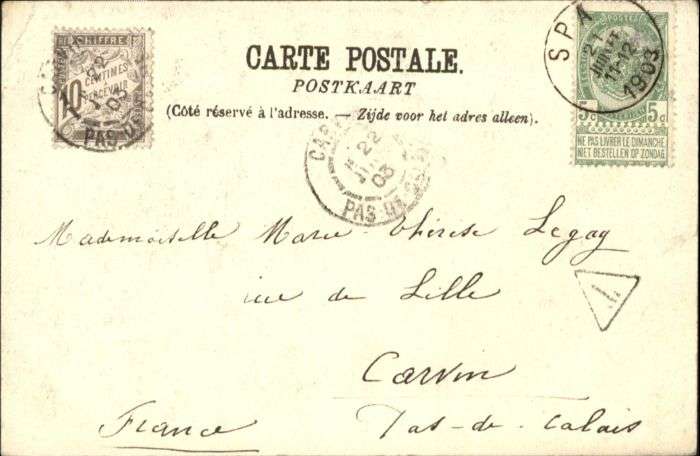 CHIFFRE
10 CENTIMES
A PERCEVOIR
22
03
PAS D
CARTE POSTALE.
POSTKAART
(Côté réservé à l'adresse. — Zijde voor het adres alleen).
SPA
21
JUIL
11-12
1903
5c 5c
NE PAS LIVRER LE DIMANCHE
NIET BESTELLEN OP ZONDAG
CAR
22
03
PAS DE
Mademoiselle Marie-Thérèse Legay
rue de Lille
T
Carvin
France Pas-de-Calais